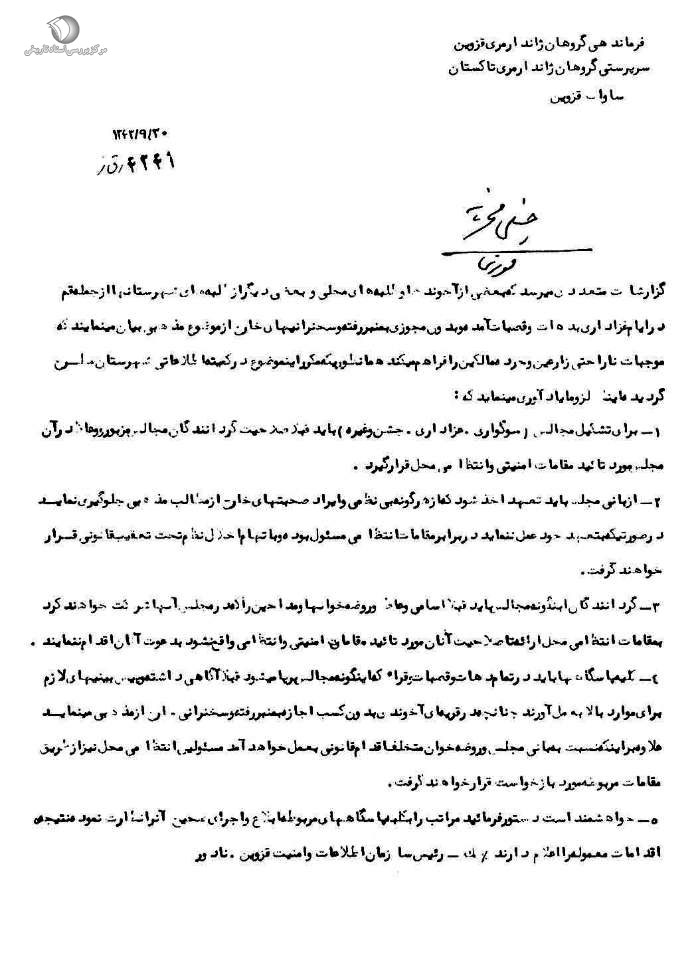 مرکز بررسی اسناد تاریخی
فرماندهی گروهان ژاندارمری قزوین
سرپرستی گروهان ژاندارمری تاکستان
ساواک قزوین
۱۳۴۲/۹/۲۰
۴۲۴۱ / ق ز
خیلی محرمانه
فوری
گزارشات متعددی میرسد که بعضی از آخوندها و طلبه های محلی و بعضی دیگر از طلبه های شهرستانها از جمله قم
در ایام عزاداری بدهات و قصبات آمده و بدون مجوزی بمنبر رفته و سخنرانیهای خارج از موضوع مذهبی بیان مینمایند که
موجبات ناراحتی زارعین و خرده مالکین را فراهم میکند همانطوریکه مکرر اینموضوع در کمیته اطلاعاتی شهرستان مطرح
گردیده علیهذا لزوما یادآوری مینماید که :
۱ـ برای تشکیل مجالس (سوگواری . عزاداری . جشن و غیره) باید قبلا صلاحیت گردانندگان مجالس مزبور و وعاظ در آن
مجلس مورد تائید مقامات امنیتی و انتظامی محل قرار گیرد .
۲ـ از بانی مجلس باید تعهد اخذ شود که از هرگونه بی نظمی و ایراد صحبتهای خارج از مطالب مذهبی جلوگیری نماید
در صورتیکه بتعهد خود عمل ننماید در برابر مقامات انتظامی مسئول بوده و باتهام اخلال نظم تحت تعقیب قانونی قرار
خواهند گرفت .
۳ـ گردانندگان اینگونه مجالس باید قبلا اسامی وعاظ و روضه خوانها و مداحین را که در مجلس آنها شرکت خواهند کرد
بمقامات انتظامی محل ارائه تا صلاحیت آنان مورد تائید مقامات امنیتی و انتظامی واقع نشود بدعوت آنان اقدام ننمایند .
۴ـ کلیه پاسگاه ها باید در تمام دهات و قصبات و قراء که اینگونه مجالس برپا میشود قبلا آگاهی داشته و پیش بینیهای لازم
برای موارد بالا به عمل آورند چنانچه در قریه ای آخوندی بدون کسب اجازه بمنبر رفته و سخنرانی خارج از مذهبی مینماید
علاوه بر اینکه نسبت به بانی مجلس و روضه خوان متخلف اقدام قانونی بعمل خواهد آمد مسئولین انتظامی محل نیز از طریق
مقامات مربوطه مورد بازخواست قرار خواهند گرفت .
۵ـ خواهشمند است دستور فرمائید مراتب را بکلیه پاسگاههای مربوطه ابلاغ و اجرای صحیح آنرا نظارت نموده نتیجه
اقدامات معموله را اعلام دارند ٪ ک ـ رئیس سازمان اطلاعات و امنیت قزوین . نادور